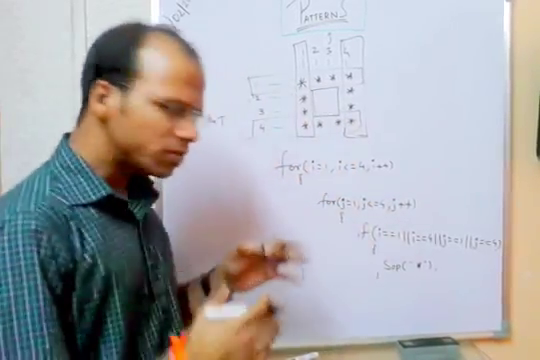 PATTERNS
j
1 2 3 4
* * * *
2 *
3 *
4 * * * *
for(i=1, i<=4, i++)
{
for(j=1, j<=4, j++)
{
if(i==1||i==4||j==1||j==4)
{
Sop("*"),